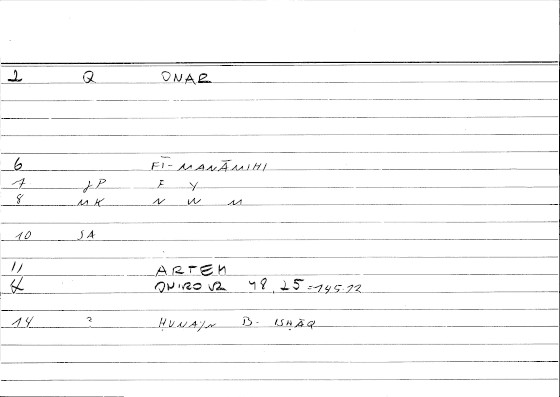 1 Q ONAR
6 FĪ-MANĀMIHI
7 JP F Y
8 MK N W M
10 SA
11 ARTEM
ONIROCR 48,25=145.12
14 ? ḤUNAYN B- ISḤĀQ